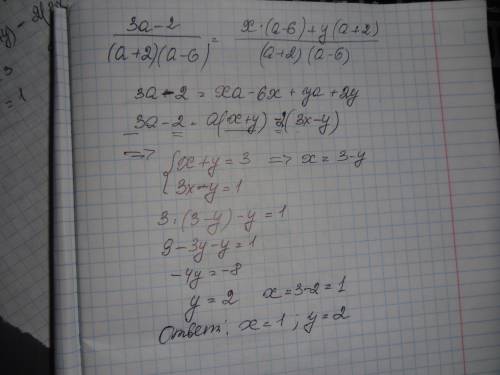 3a-2 / (a+2)(a-6) = x·(a-6)+y(a+2) / (a+2)(a-6)
3a-2 = xa-6x+ya+2y
3a-2 = a(x+y)-2(3x-y)
=> { x+y=3 => x=3-y
3x-y=1
3·(3-y)-y=1
9-3y-y=1
-4y=-8
y=2 x=3-2=1
Ответ: x=1; y=2